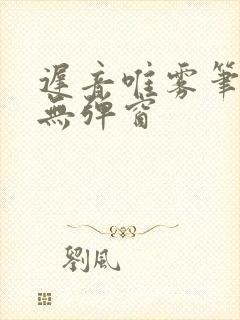 遲音唯雾筆
無弹窗
劉風